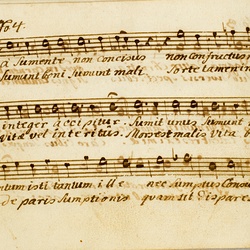 No 4.
a Sumente non concisus non confractus
Sumunt boni Sumunt mali Sorte tamen in
integer accipitur. Sumit unus Sumunt
vel interitus. Mors est malis Vita b
ntum isti tantum ille nec sumptus Consu
de paris Sumptionis quam sit dispares